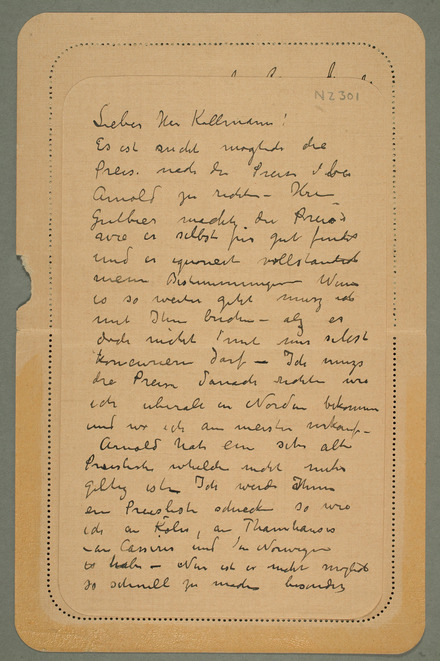 N 2301
Lieber Herr Kollmann!
Es ist nicht moglich die
Preis. nach den Preisen
Arnold zu richten — Herr
Gutbier macht die Preis
wie er selbst fur gut findet
und er ignoriert vollstandich
meine Bestimmungen Wenn
es so weiter geht muss ich
mit Ihm brechen — als er
doch nicht mit mir selbst
konkurieren darf — Ich muss
die Preise danach richten wie
ich uberale in Norden bekommen
und wo ich am meisten verkauf—
Arnold hat ein sehr alte
Preisliste whelche nicht mehr
giltig ist. Ich werde Ihnen
ein Preisliste schicken so wie
ich an Köln, an Thannhauser
— an Cassirer und in Norwegen
es habe — Nun ist es nicht moglich
so schnell zu machen besonders